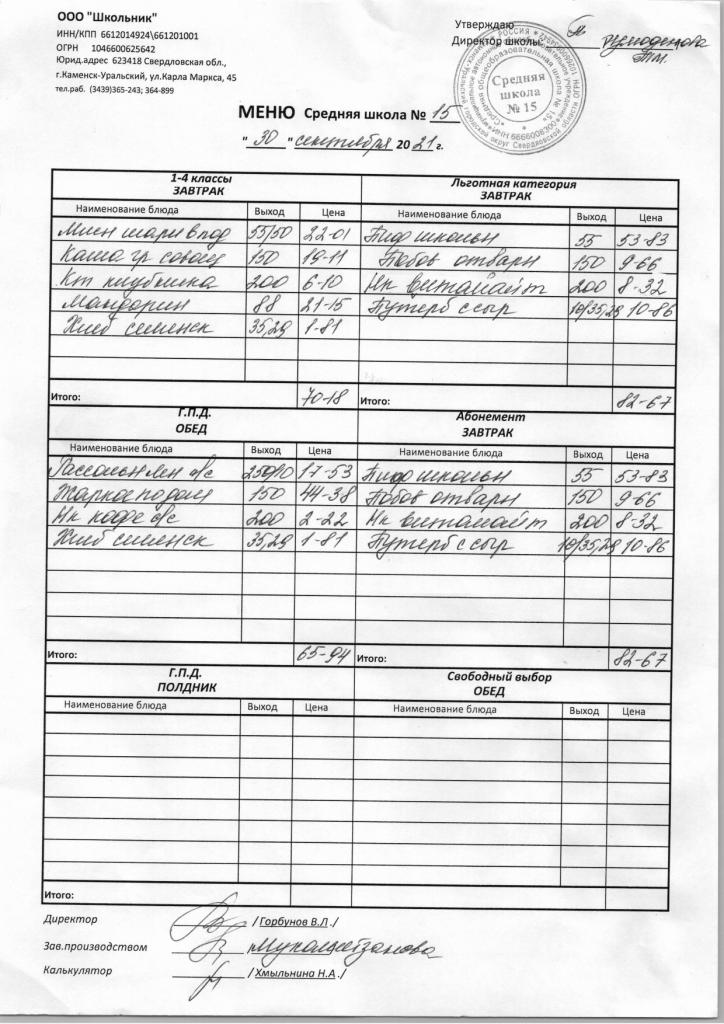 ООО "Школьник"
ИНН/КПП 6612014924\661201001
ОГРН 1046600625642
Юрид.адрес 623418 Свердловская обл.,
г.Каменск-Уральский, ул.Карла Маркса, 45
тел.раб. (3439)365-243; 364-899
Утверждаю
Директор школы:
Средняя
школа
№ 15
МЕНЮ Средняя школа № 15
"30" сентября 2021 г.
1-4 классы Льготная категория
ЗАВТРАК ЗАВТРАК
Наименование блюда Выход Цена Наименование блюда Выход Цена
Мясн шари в под 55/50 22-01 Тифт школьн 55 53-83
Каша гр 150 19-11 отварн 150 9-66
Кт клубника 200 6-10 Нк витамайт 200 8-32
Мандарин 88 21-15 Бутерб с сыр 10/35,29 10-86
Хлеб 35,29 1-81
Итого: 70-18 Итого: 82-67
Г.П.Д. Абонемент
ОБЕД ЗАВТРАК
Наименование блюда Выход Цена Наименование блюда Выход Цена
Рассольн лен в/с 250/10 17-53 школьн 55 53-83
Жаркое по дом 150 44-38 отварн 150 9-66
Нк кофе в/с 200 2-22 Нк витамайт 200 8-32
Хлеб 35,29 1-81 Бутерб с сыр 10/35,29 10-86
Итого: 65-94 Итого: 82-67
Г.П.Д. Свободный выбор
ПОЛДНИК ОБЕД
Наименование блюда Выход Цена Наименование блюда Выход Цена
Итого:
Директор / Горбунов В.Л ./
Зав.производством
Калькулятор / Хмыльнина Н.А ./